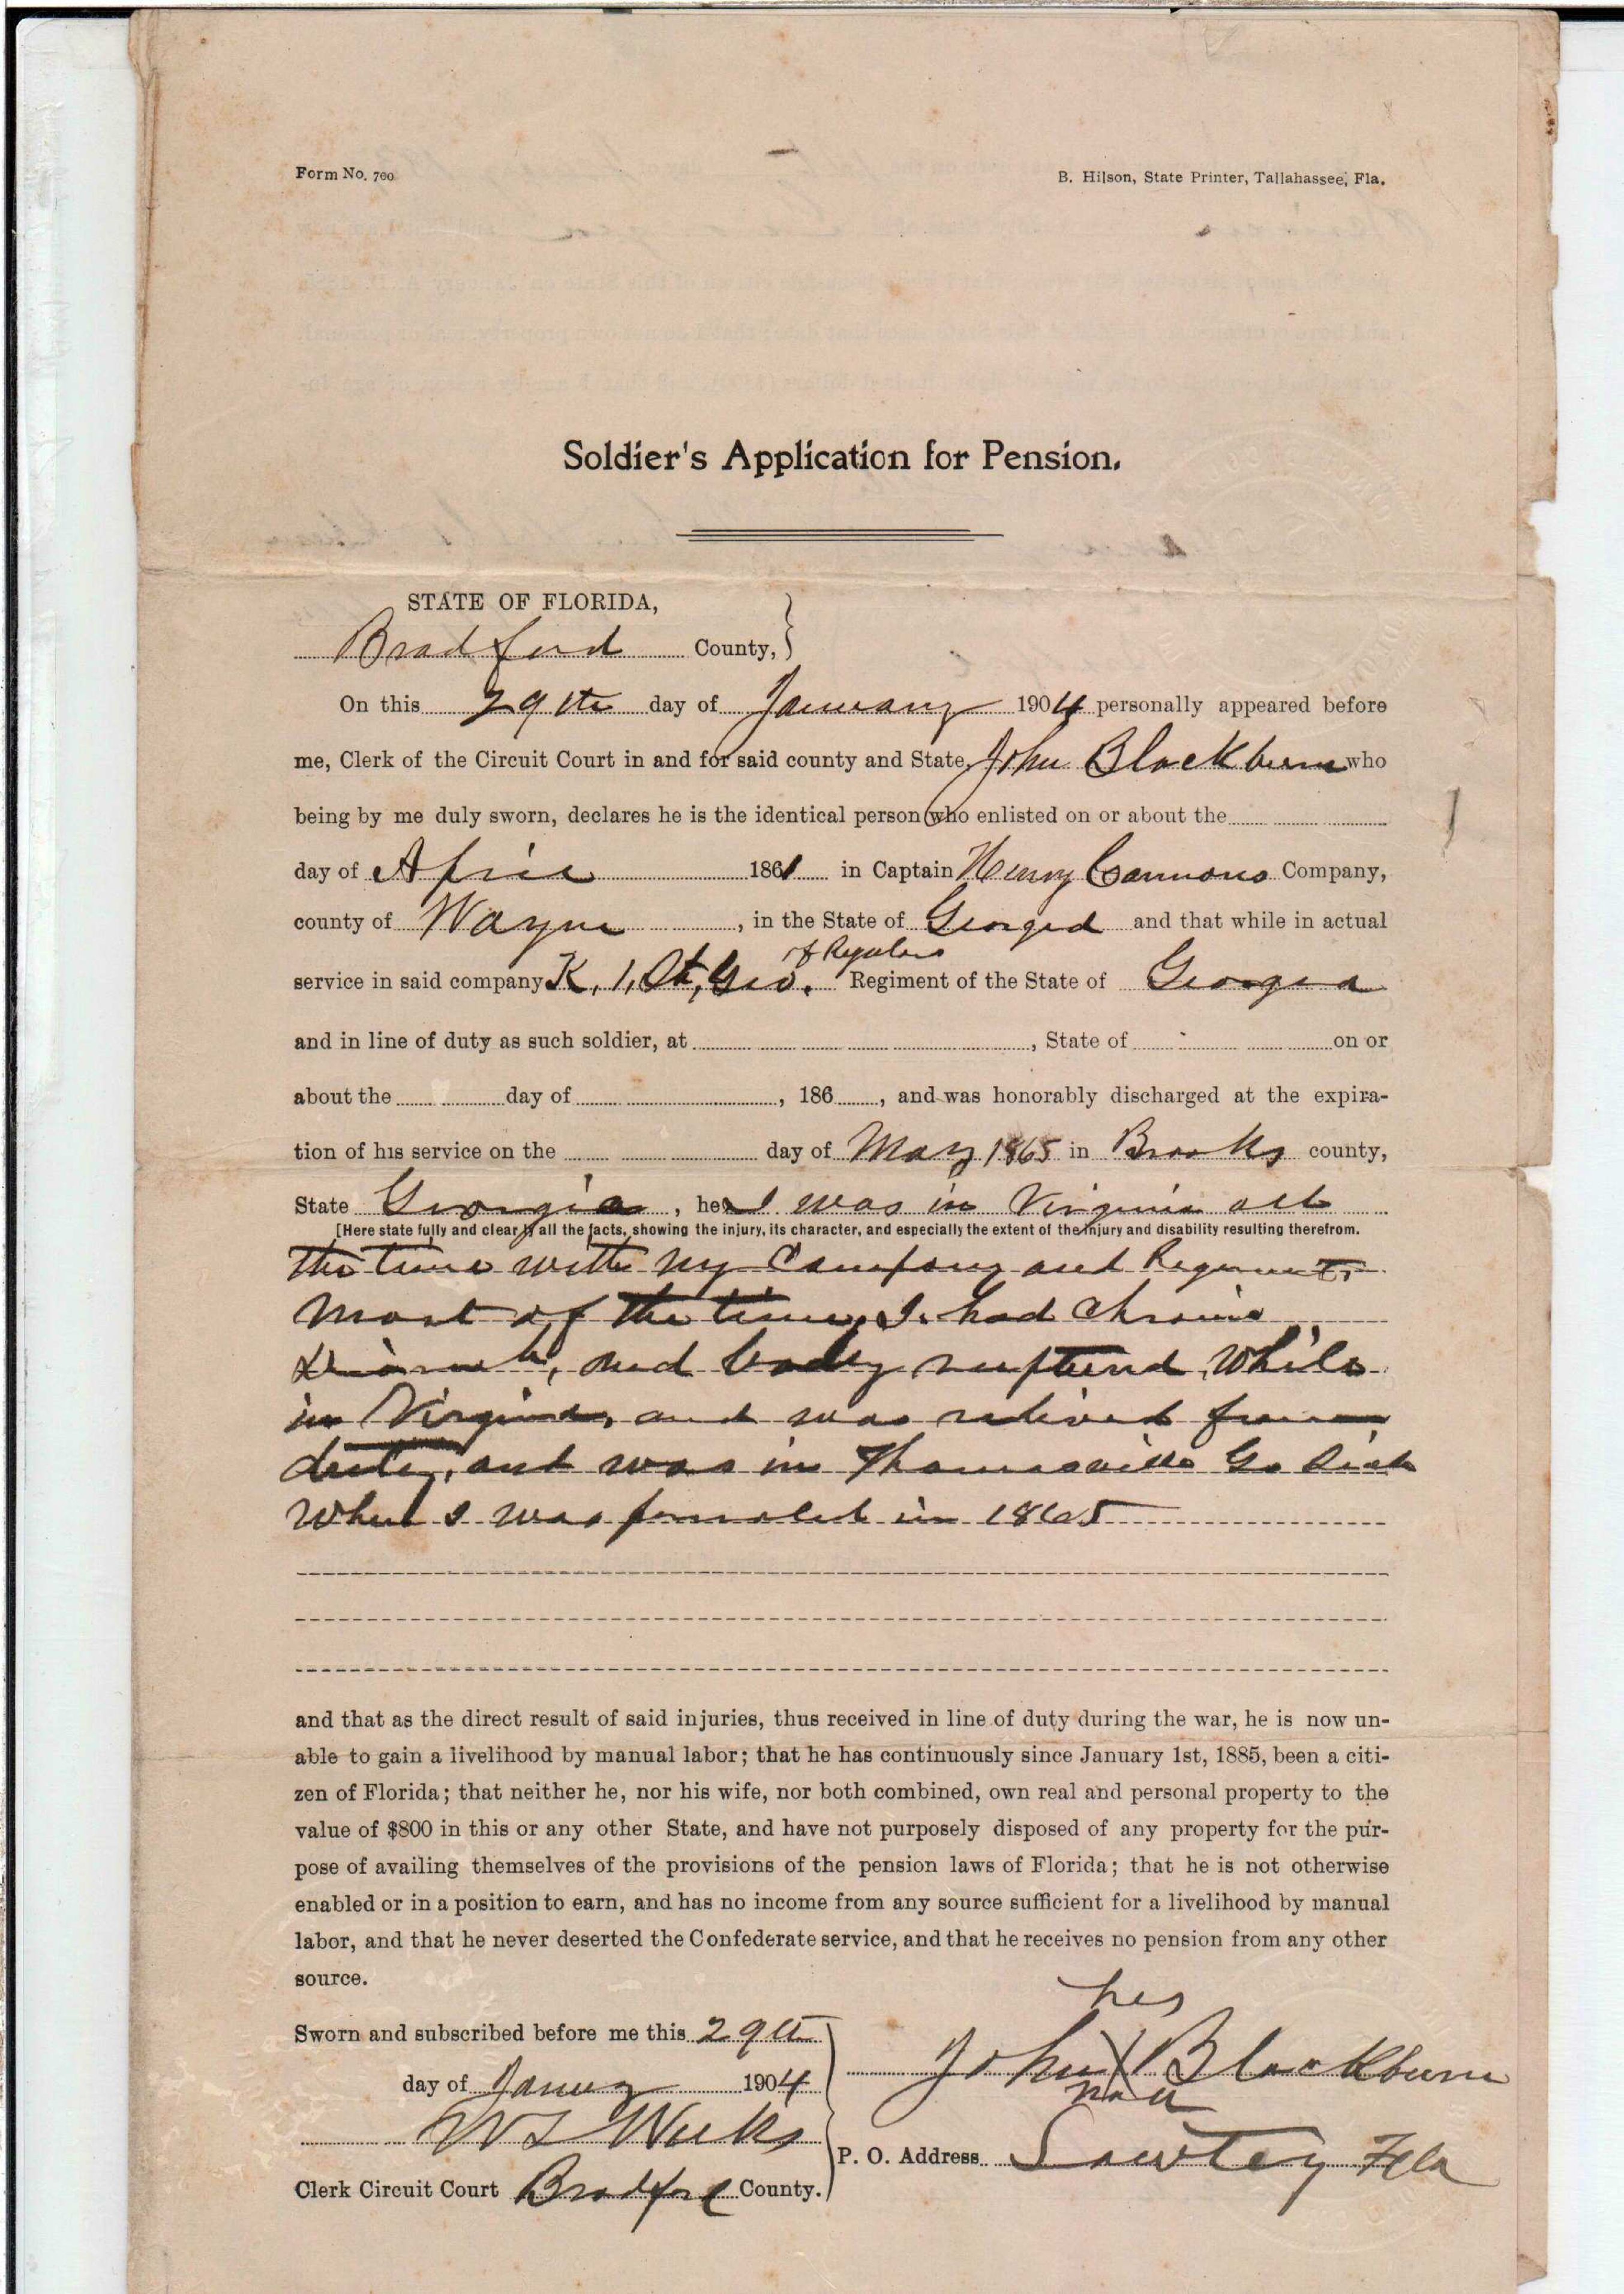 Form No. 700
B. Hilson, State Printer, Tallahassee, Fla.
Soldier's Application for Pension.
STATE OF FLORIDA,
Bradford County, }
On this 29th day of January 1904 personally appeared before
me, Clerk of the Circuit Court in and for said county and State, John Blackburn who
being by me duly sworn, declares he is the identical person who enlisted on or about the
day of April 1861 in Captain Henry Cannons Company,
county of Wayne, in the State of Georgia and that while in actual
of Regulars
service in said company K, 1, St, Geo. Regiment of the State of Georgia
and in line of duty as such soldier, at , State of on or
about the day of , 186 , and was honorably discharged at the expira-
tion of his service on the day of May 1865 in Brooks county,
State Georgia, he I was in Virginia all
[Here state fully and clearly all the facts, showing the injury, its character, and especially the extent of the injury and disability resulting therefrom.
the time with my Company and Regiment,
most of the time, I had Chronic
, and badly ruptured while
in Virginia, and was relieved from
duty, and was in Thomasville Ga Sick
when I was paroled in 1865
and that as the direct result of said injuries, thus received in line of duty during the war, he is now un-
able to gain a livelihood by manual labor; that he has continuously since January 1st, 1885, been a citi-
zen of Florida; that neither he, nor his wife, nor both combined, own real and personal property to the
value of $800 in this or any other State, and have not purposely disposed of any property for the pur-
pose of availing themselves of the provisions of the pension laws of Florida; that he is not otherwise
enabled or in a position to earn, and has no income from any source sufficient for a livelihood by manual
labor, and that he never deserted the Confederate service, and that he receives no pension from any other
source.
his
Sworn and subscribed before me this 29th
John X Blackburn
day of January 1904
mark
W S Weeks
P. O. Address Lawtey Fla
Clerk Circuit Court Bradford County.